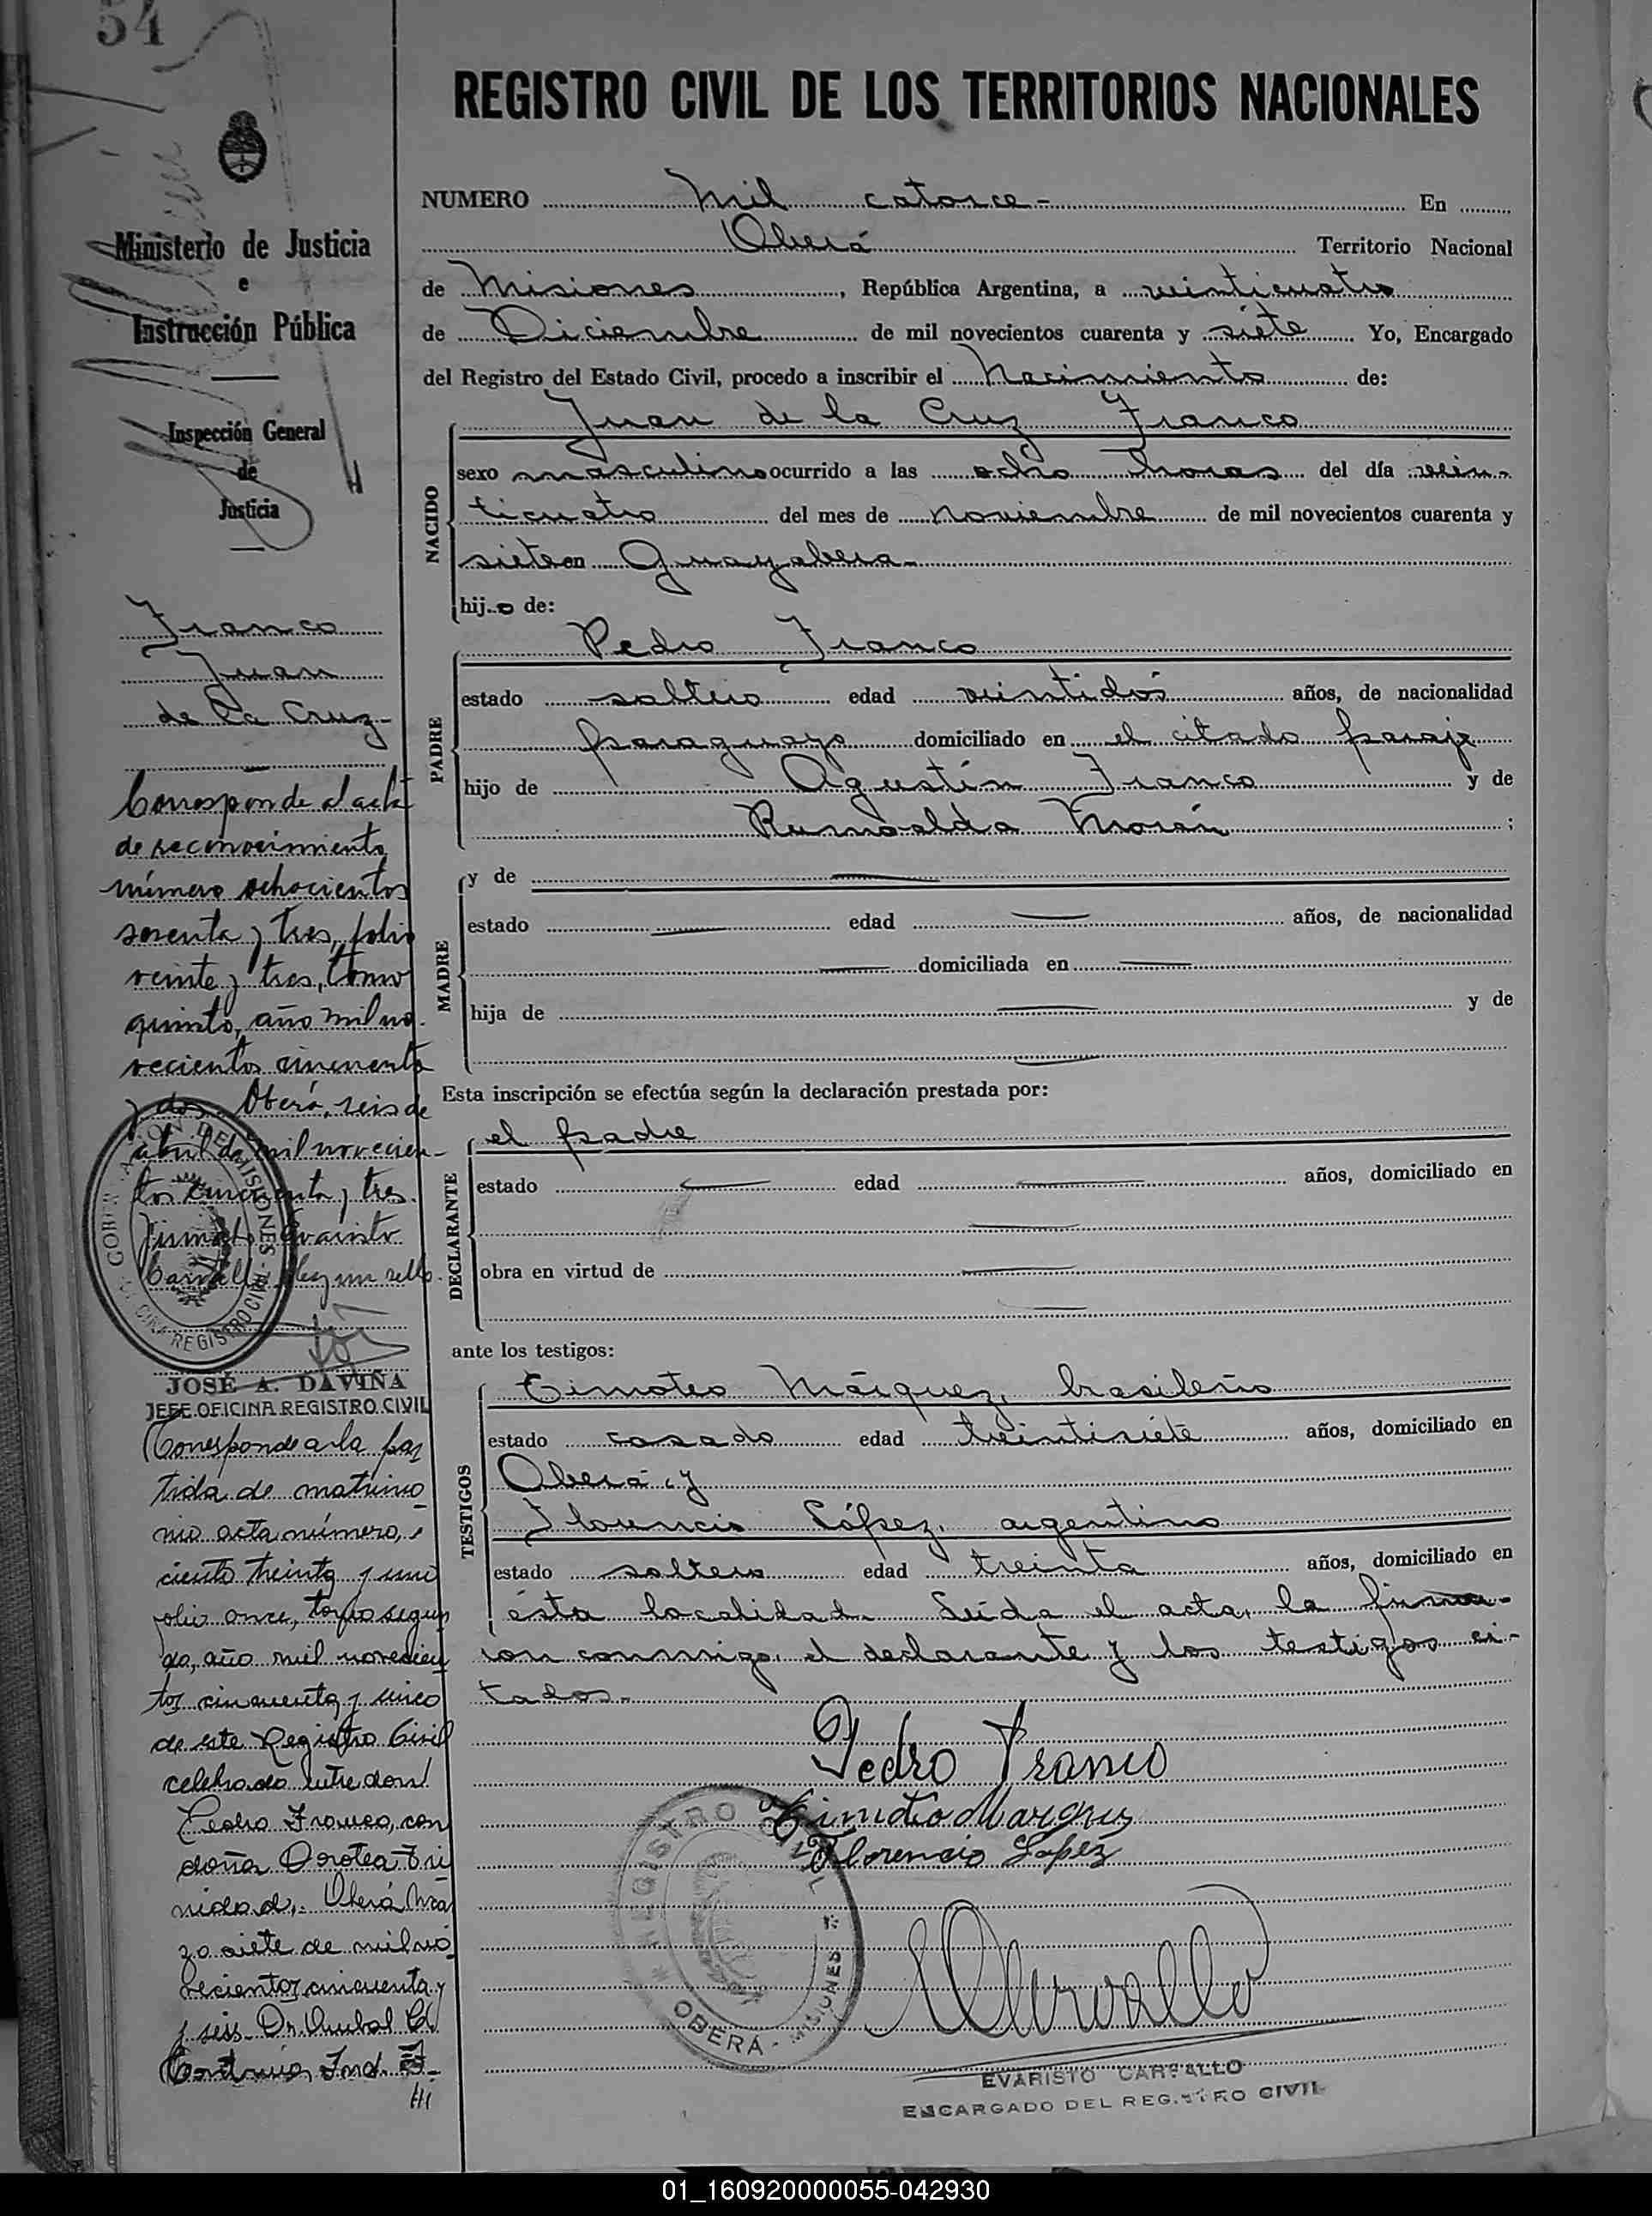 54
Ministerio de Justicia
e
Instrucción Pública
Inspección General
de
Justicia
Franco
Juan
de la Cruz
Corresponde al acta
de reconocimiento
número ochocientos
sesenta y tres, folio
veinte y tres, tomo
quinto, año mil no-
vecientos cincuenta
y dos. Oberá, seis de
abril de mil novecien-
tos cincuenta y tres.
Firmado Evaristo
Carvallo. Hay un sello.
JOSÉ A. DAVIÑA
JEFE OFICINA REGISTRO CIVIL
Corresponde a la par
tida de matrimo-
nio acta número,
ciento treinta y uno
folio once, tomo segun
do, año mil novecien
tos cincuenta y cinco
de este Registro Civil
celebrado entre don
Pedro Franco, con
doña Dorotea Tri
nidad. Oberá Mar
zo siete de mil no-
vecientos cincuenta y
y seis. Dr.
REGISTRO CIVIL DE LOS TERRITORIOS NACIONALES
NUMERO Mil catorce- En
Oberá Territorio Nacional
de Misiones, República Argentina, a veinticuatro
de Diciembre de mil novecientos cuarenta y siete. Yo, Encargado
del Registro del Estado Civil, procedo a inscribir el Nacimiento de:
NACIDO
Juan de la Cruz Franco
sexo masculino ocurrido a las ocho horas del día vein-
ticuatro del mes de Noviembre de mil novecientos cuarenta y
siete en Guayabera-
hijo de:
PADRE
Pedro Franco
estado soltero edad veintidós años, de nacionalidad
paraguayo domiciliado en el citado paraje
hijo de Agustín Franco y de
Rumoalda Morán ;
MADRE
y de
estado edad años, de nacionalidad
domiciliada en
hija de y de
Esta inscripción se efectúa según la declaración prestada por:
DECLARANTE
el padre
estado edad años, domiciliado en
obra en virtud de
ante los testigos:
TESTIGOS
Timoteo Márquez, brasileño
estado casado edad treintisiete años, domiciliado en
Oberá y
Florencio López, argentino
estado soltero edad treinta años, domiciliado en
ésta localidad. Leída el acta, la firma-
ron conmigo, el declarante y los testigos ci-
tados.-
Pedro Franco
Timoteo Marquez
Florencio Lopez
REGISTRO CIVIL
OBERÁ - MISIONES
EVARISTO CARVALLO
ENCARGADO DEL REGISTRO CIVIL
01_160920000055-042930